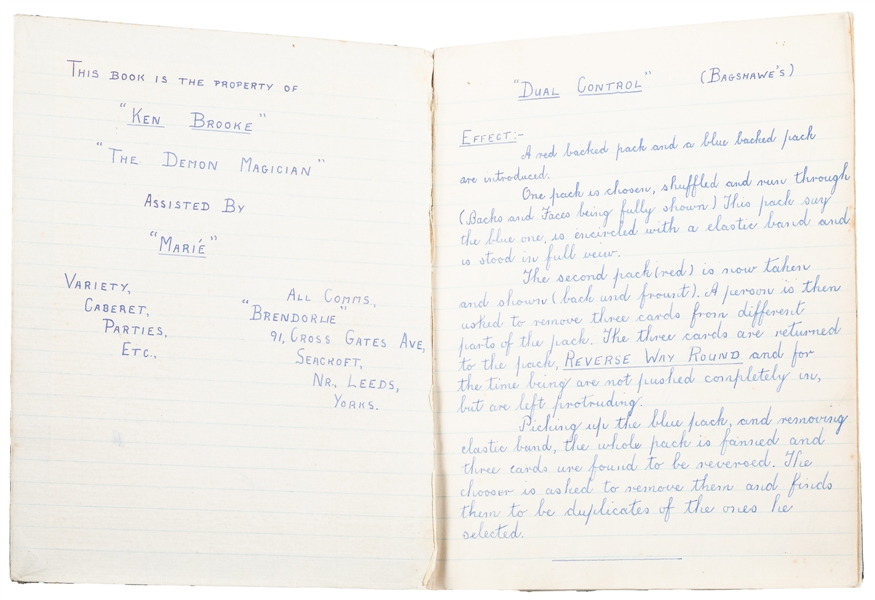 THIS BOOK IS THE PROPERTY OF
"KEN BROOKE"
"THE DEMON MAGICIAN"
ASSISTED BY
"MARIÉ"
VARIETY,
CABERET,
PARTIES,
ETC.,
ALL COMMS.,
"BRENDORLIE"
91, CROSS GATES AVE,
SEACROFT,
NR., LEEDS,
YORKS.
"DUAL CONTROL" (BAGSHAWE'S)
EFFECT:-
A red backed pack and a blue backed pack
are introduced.
One pack is chosen, shuffled and run through
(Backs and Faces being fully shown) This pack say
the blue one, is encircled with a elastic band and
is stood in full veiw.
The second pack (red) is now taken
and shown (back and frount). A person is then
asked to remove three cards from different
parts of the pack. The three cards are returned
to the pack, REVERSE WAY ROUND and for
the time being are not pushed completely in,
but are left protruding.
Picking up the blue pack, and removing
elastic band, the whole pack is fanned and
three cards are found to be reversed. The
chooser is asked to remove them and finds
them to be duplicates of the ones he
selected.